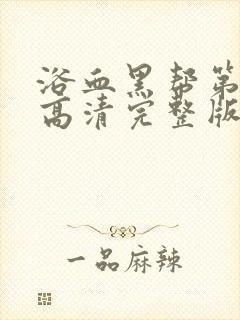 浴血黑帮第
高清完整版
一品麻辣